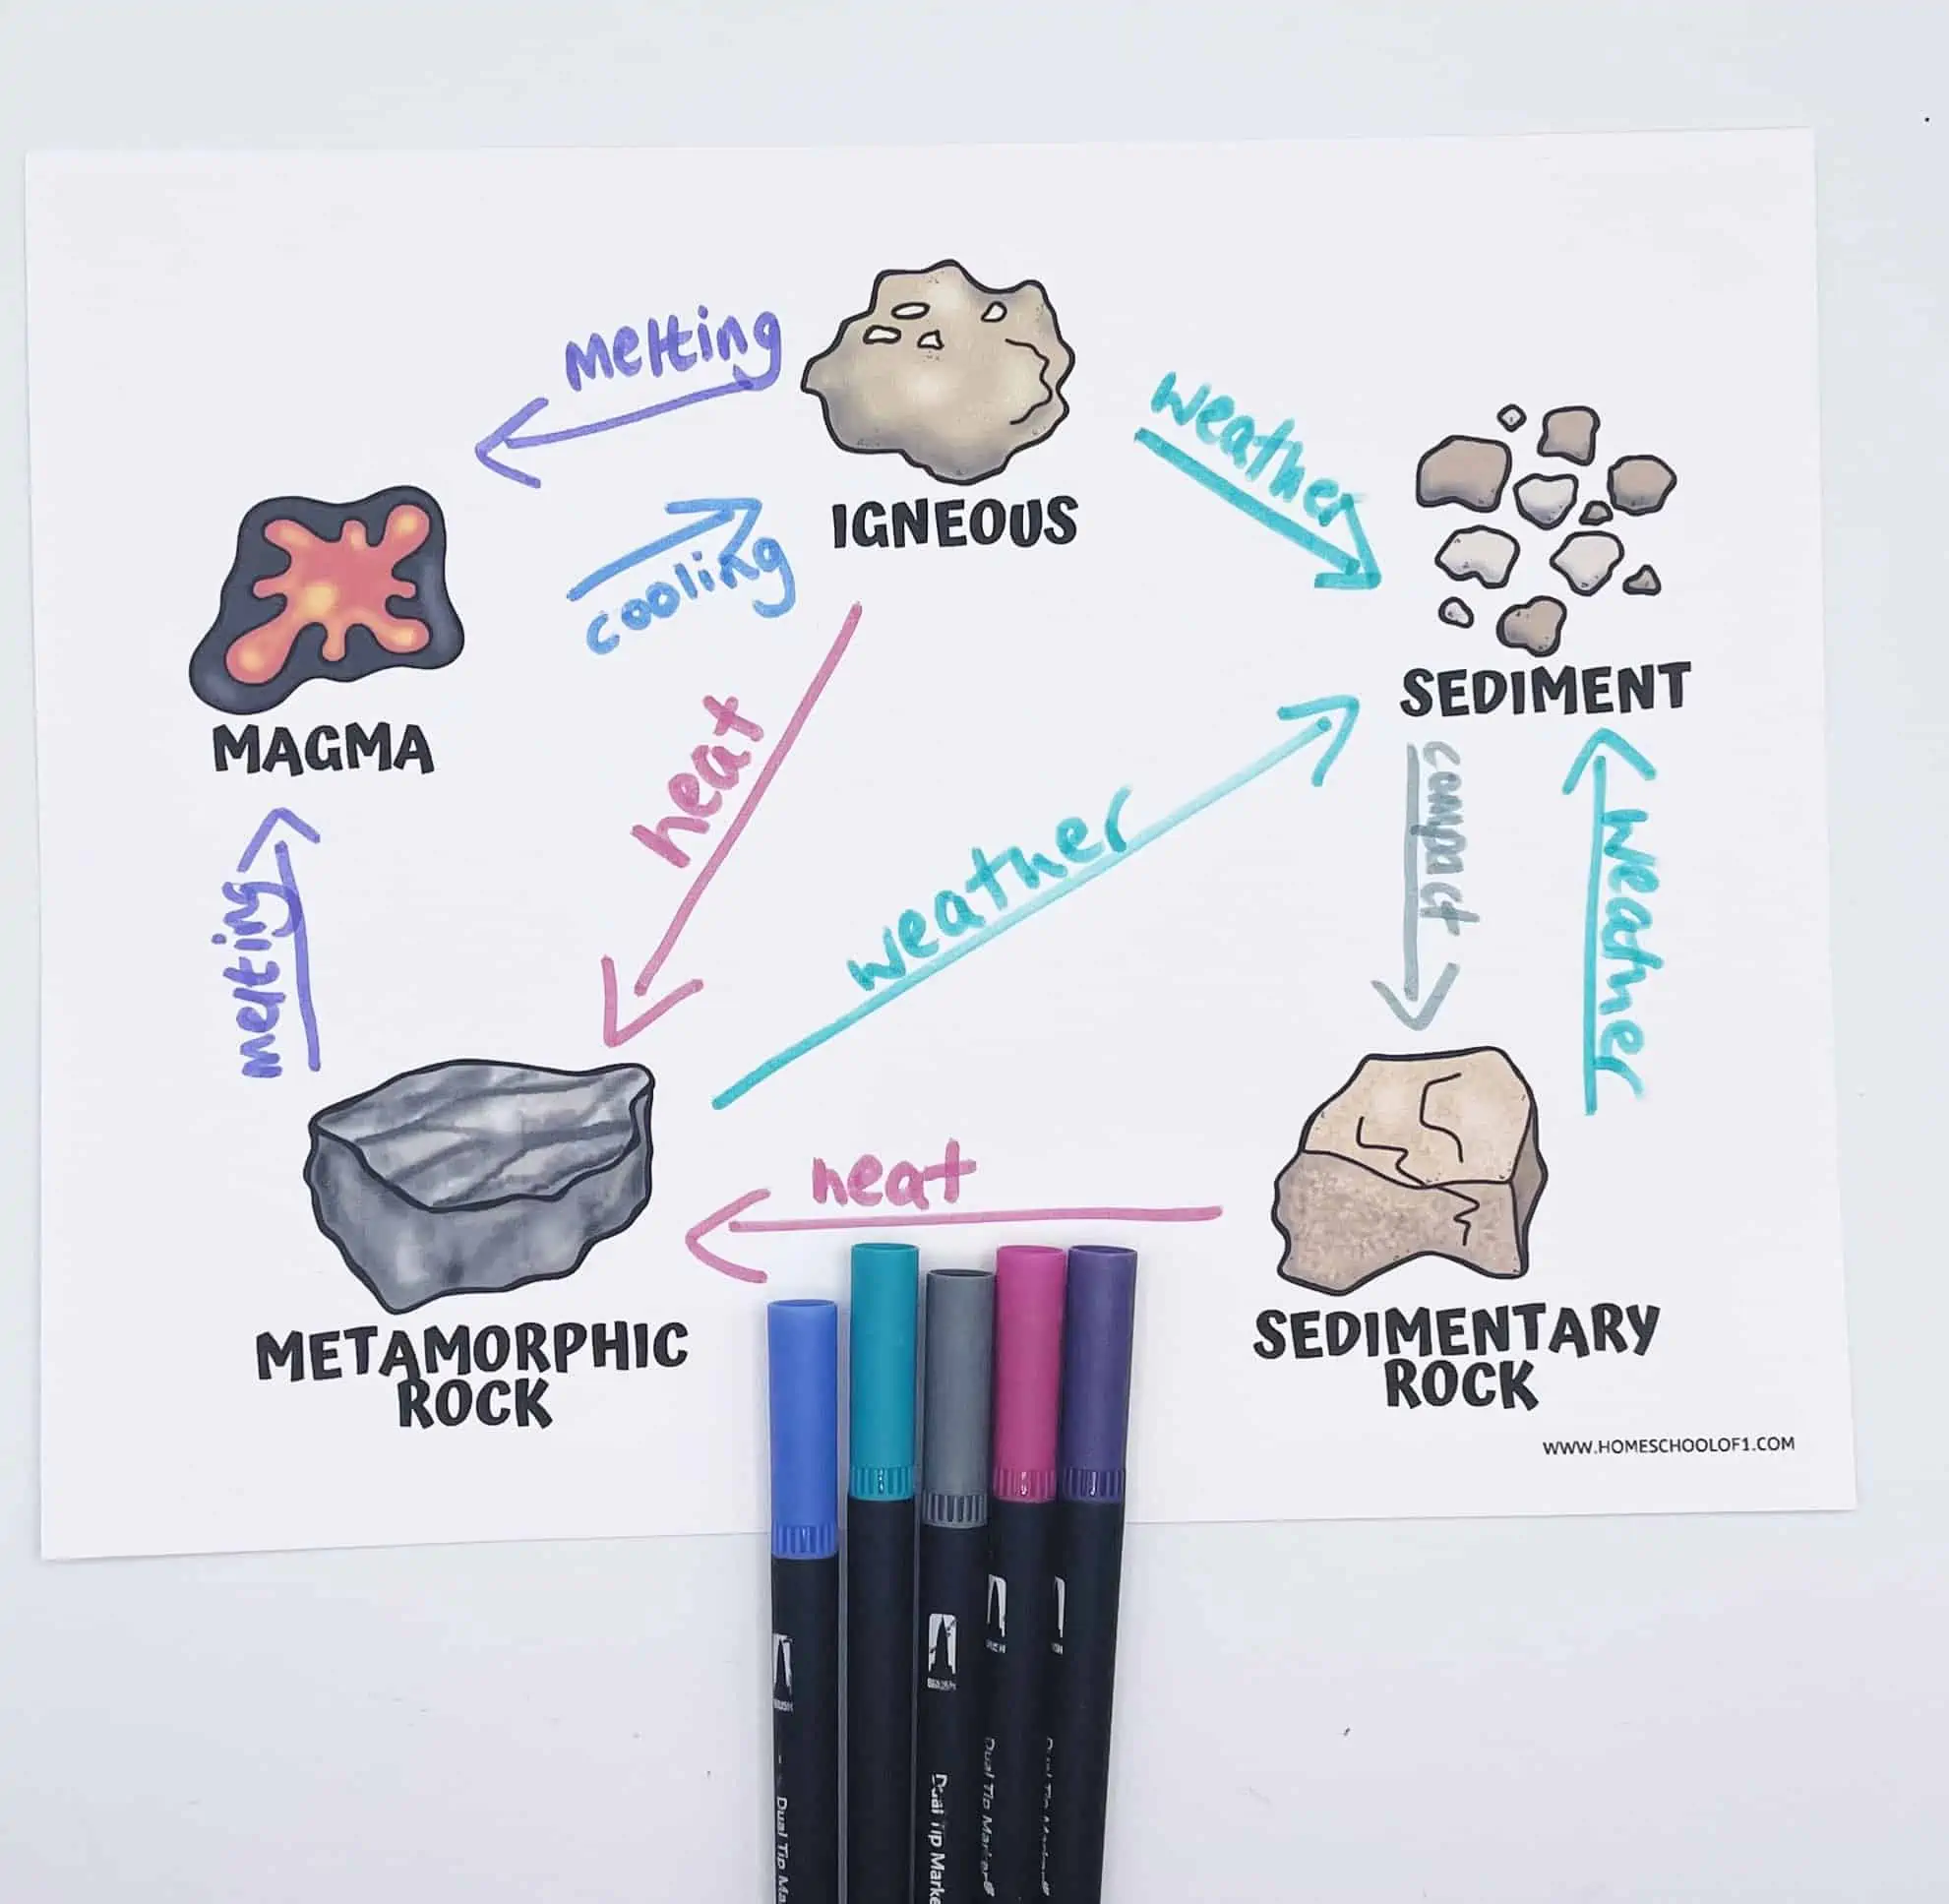 melting
IGNEOUS
weather
cooling
SEDIMENT
MAGMA
heat
weather
compact
weather
melting
heat
METAMORPHIC
ROCK
SEDIMENTARY
ROCK
WWW.HOMESCHOOLOF1.COM
Dual Tip Ma
Dual Tip Marke
Dual Tip Marker
Dual Tip Marker